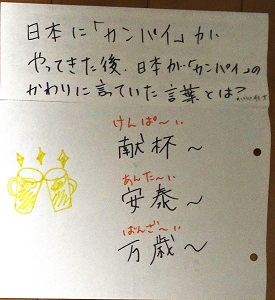 日本に「カンパイ」が
やってきた後、日本が「カンパイ」の
かわりに言っていた言葉とは?
けんぱ〜い
献杯〜
あんた〜い
安泰〜
ばんざ〜い
万歳〜